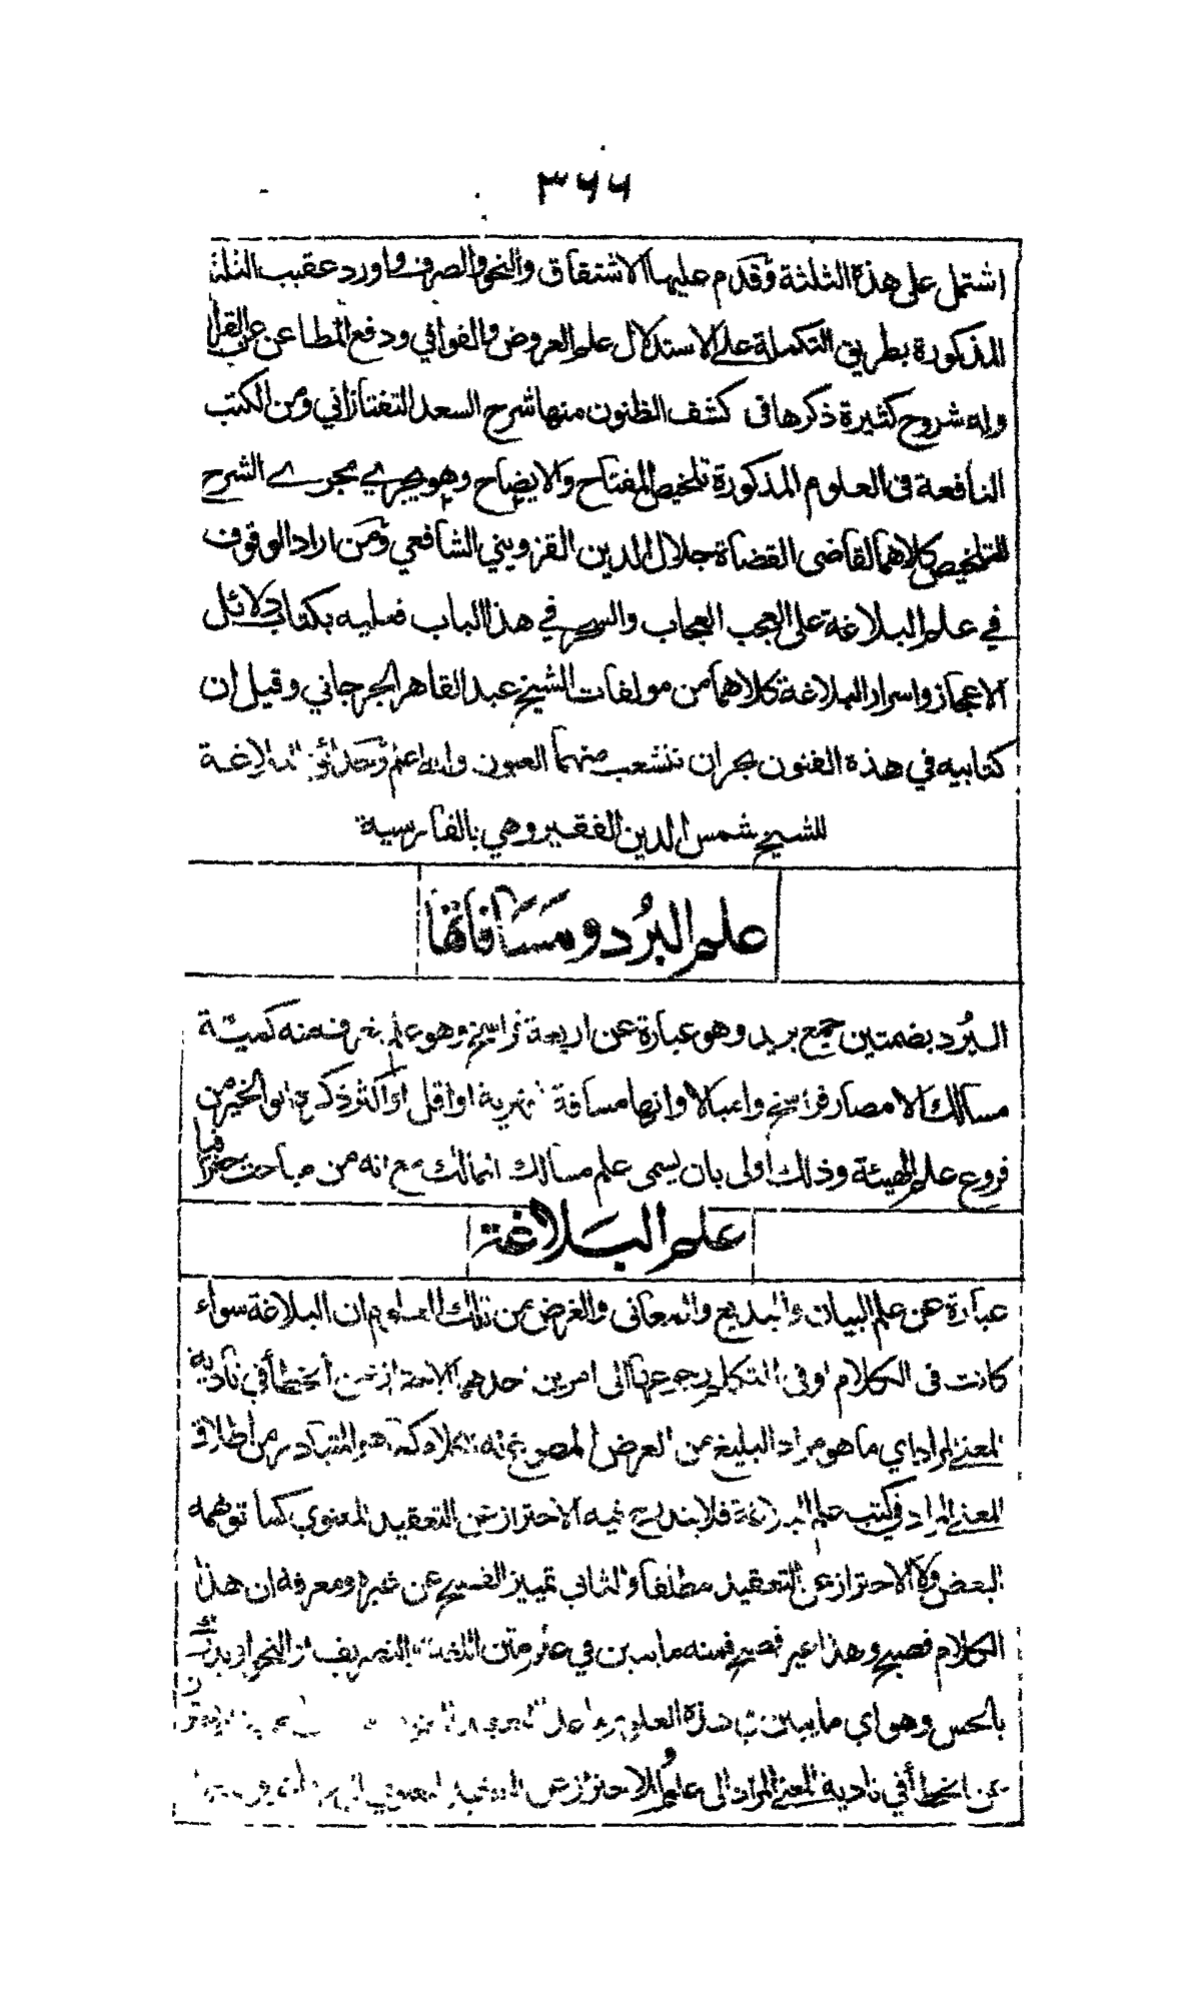 ٣٦٦
اشتمل على هذه الثلثة وقدم عليها الاشتقاق والنحو والصرف واورد عقيب الثلثة
المذكورة بطريق التكملة على الاستدلال علم العروض والقوافي ودفع المطاعن عن القران
وله شروح كثيرة ذكرها في كشف الظنون منها شرح السعد التفتازاني ومن الكتب
النافعة في العلوم المذكورة تلخيص المفتاح والايضاح وهو يجري مجرى الشرح
للتلخيص كلاهما لقاضى القضاة جلال الدين القزويني الشافعي ومن اراد الوقوف
في علم البلاغة على العجب العجاب والسحر في هذا الباب فعليه بكتاب دلائل
الاعجاز واسرار البلاغة كلاهما من مولفات الشيخ عبد القاهر الجرجاني وقيل ان
كتابيه في هذه الفنون بحران تنشعب منهما العيون والله اعلم وحدائق البلاغة
للشيخ شمس الدين الفقير وهي بالفارسية
علم البُرد ومَسَافاتها
البُرد بضمتين جمع بريد وهو عبارة عن اربعة فراسخ وهو علم يتعرف منه كمية
مسالك الامصار فراسخ واميالا وانها مسافة شهرية او اقل او اكثر ذكره ابو الخير من
فروع علم الهيئة وذلك اولى بان يسمى علم مسالك الممالك مع انه من مباحث جغرافيا
علم البَلاغة
عبارة عن علم البيان والبديع والمعانى والغرض من تلك العلوم ان البلاغة سواء
كانت في الكلام او في المتكلم رجوعها الى امرين احدهما الاحتراز عن الخطأ في تأدية
المعنى المراد اي ما هو مراد البليغ من الغرض المصوغ له الكلام كما هو المتبادر من اطلاق
المعنى المراد في كتب علم البلاغة فلا يندرج فيه الاحتراز عن التعقيد المعنوي كما توهمه
البعض ولا الاحتراز عن التعقيد مطلقا والثاني تمييز الفصيح عن غيره ومعرفة ان هذا
الكلام فصيح وهذا غير فصيح فمنه ما يبين في علم متن اللغة او التصريف او النحو او يدرك
بالحس وهو اي ما يبين في هذه العلوم ما عدا التعقيد
عن الخطأ في تادية المعنى المراد الى علم والاحتراز عن التعقيد المعنوي